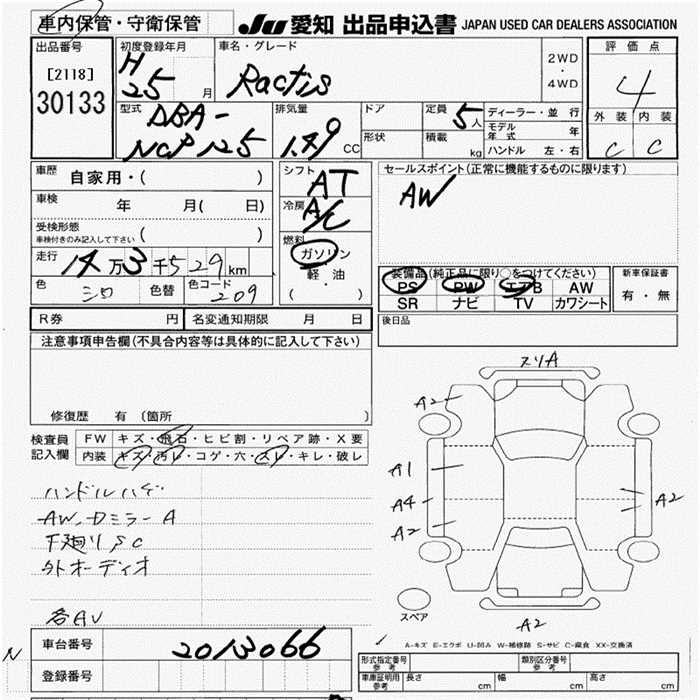 車内保管・守衛保管
JU 愛知 出品申込書 JAPAN USED CAR DEALERS ASSOCIATION
出品番号
[2118]
30133
初度登録年月
H
25 月
車名・グレード
Ractis
2WD
・
4WD
評価点
4
外装 内装
C C
型式
DBA-
NCP125
排気量
1.49 CC
ドア
形状
定員 5人
積載 kg
ディーラー・並行
モデル年式 年
ハンドル 左・右
車歴 自家用・( )
車検 年 月( 日)
受検形態
車検付きのみ記入して下さい ( )
走行 14万3千529km
色 色替 色コード 209
シフト
AT
冷房
A/C
燃料
ガソリン
軽・油
( )
セールスポイント(正常に機能するものに限ります)
AW
装備品(純正品に限り○をつけてください)
PS PW エアB AW
SR ナビ TV カワシート
新車保証書
有・無
後日品
R券 円 名変通知期限 月 日
注意事項申告欄(不具合内容等は具体的に記入して下さい)
修復歴 有(箇所
検査員
記入欄
FW キズ・飛石・ヒビ割・リペア跡・X要
内装 キズ・汚レ・コゲ・穴・スレ・キレ・破レ
ハンドルハゲ
AW、Dミラー A
下廻りSC
外オーディオ
各AU
スリA
A2
A1
A4
A2
A2
A2
スペア
A-キズ E-エクボ U-凹み W-補修跡 S-サビ C-腐食 XX-交換済
車台番号 2013066
登録番号
N
形式指定番号
参考
類別区分番号
参考
車庫証明用
参考
長さ cm 幅 cm 高さ cm